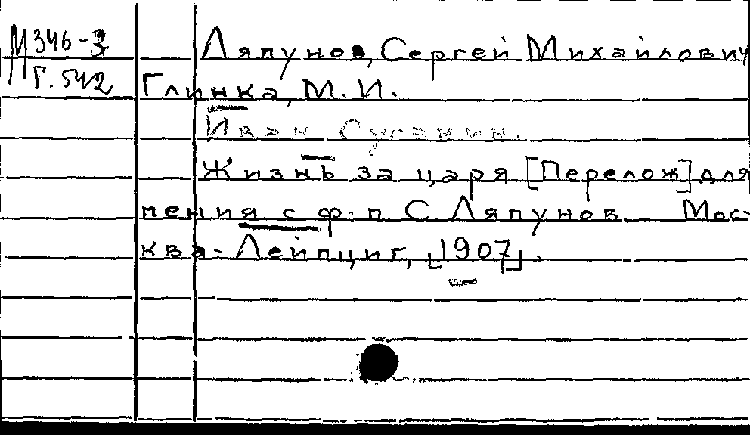 М 346-3
Г. 542
Ляпунов, Сергей Михайлович
Глинка, М. И.
Иван Сусанин.
Жизнь за царя [Перелож] для
пения с ф.-п. С. Ляпунов. Мос-
ква-Лейпциг, [1907].